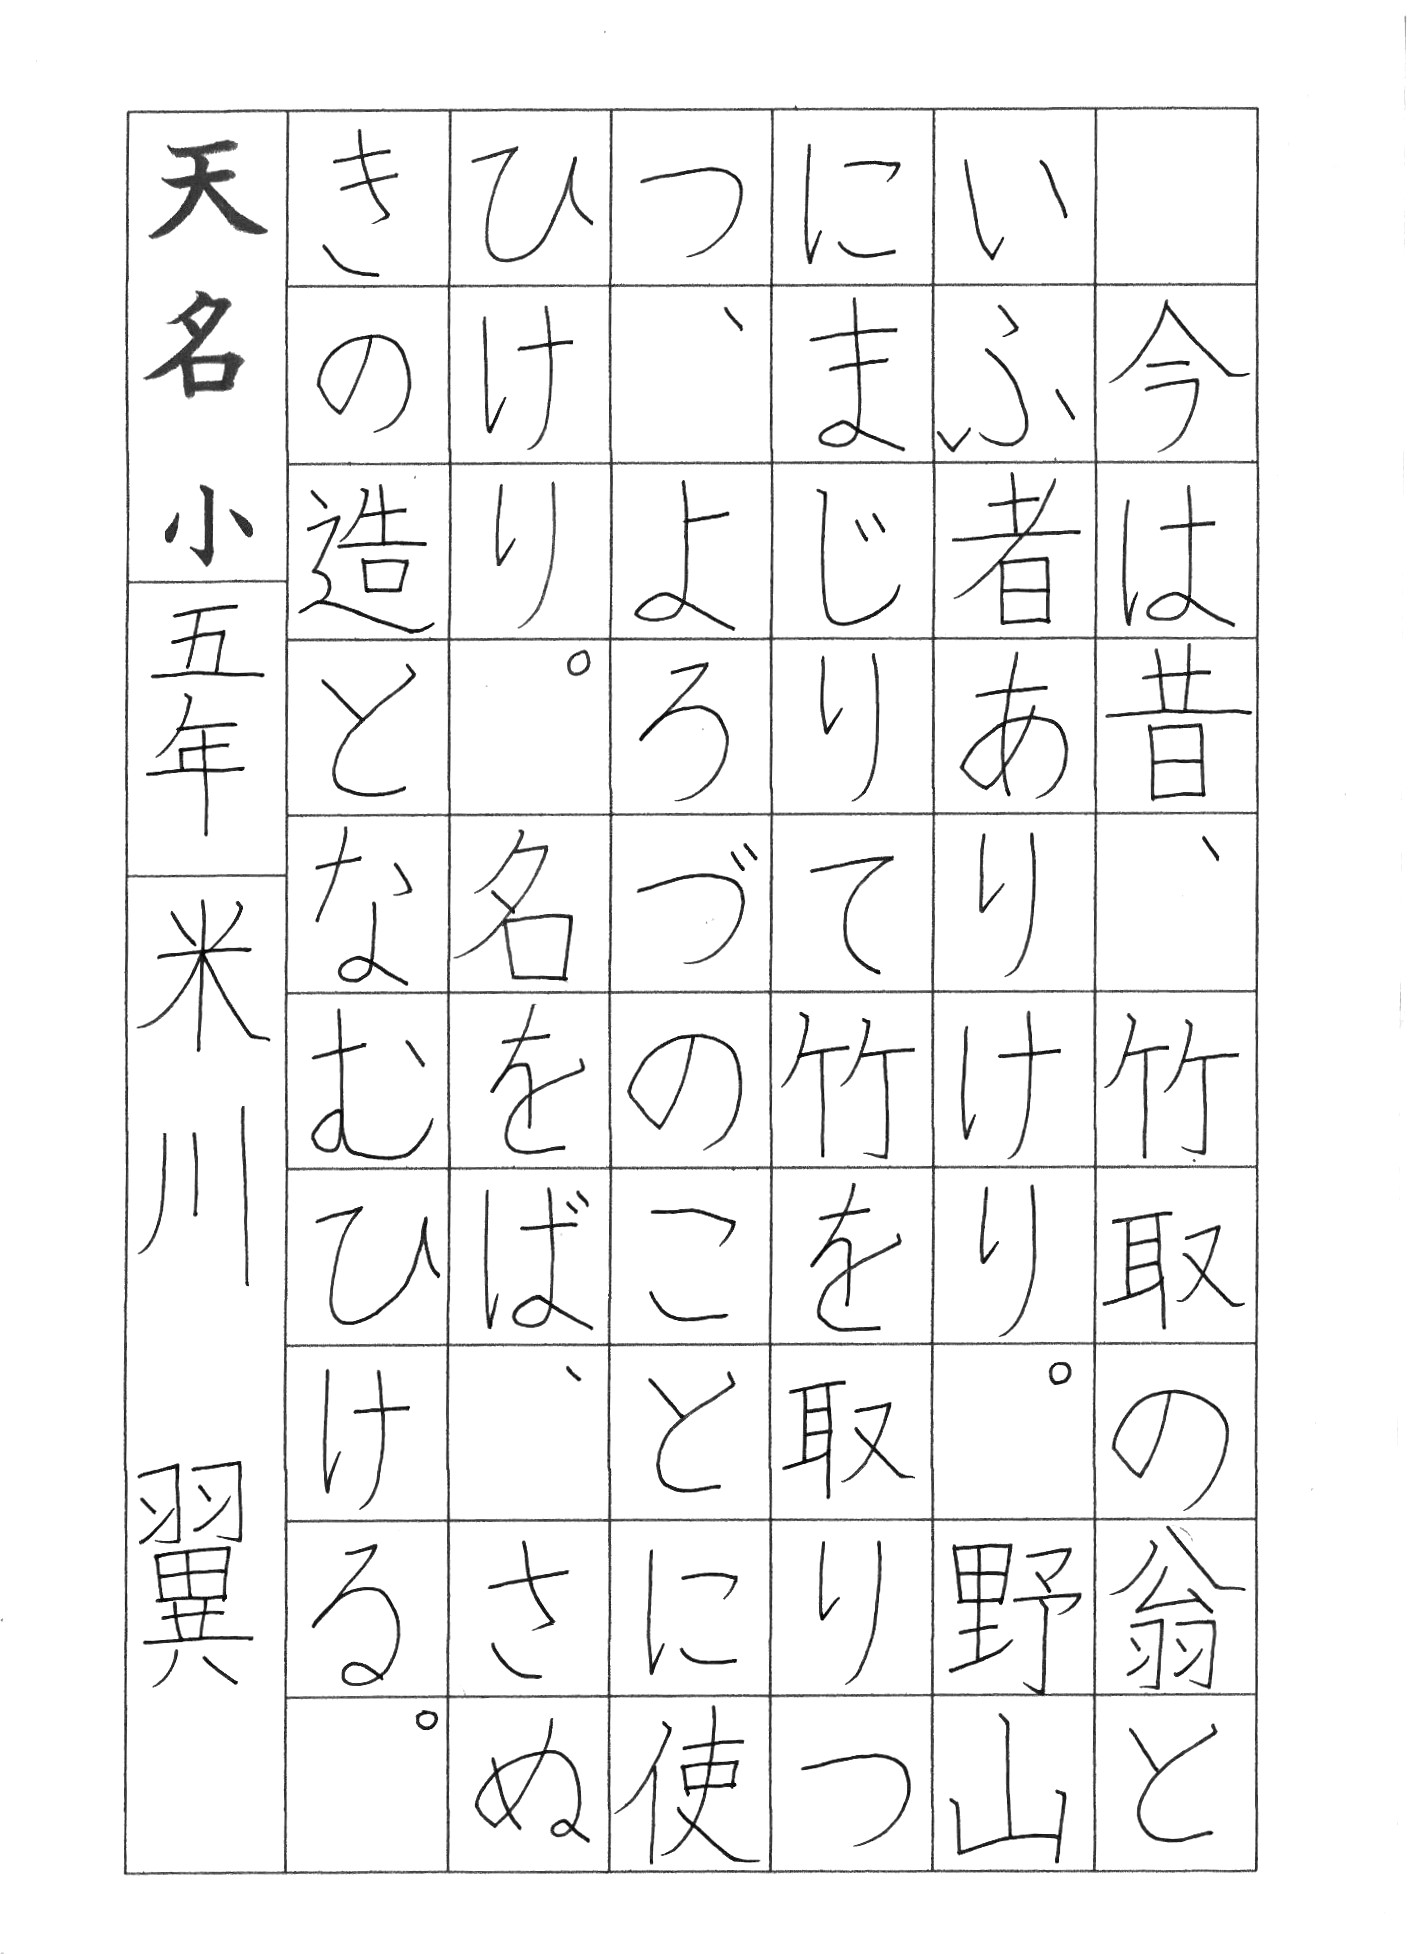 今は昔、竹取の翁と
いふ者ありけり。野山
にまじりて竹を取りつ
つ、よろづのことに使
ひけり。名をば、さぬ
きの造となむひける。
天名小 五年 米川 翼